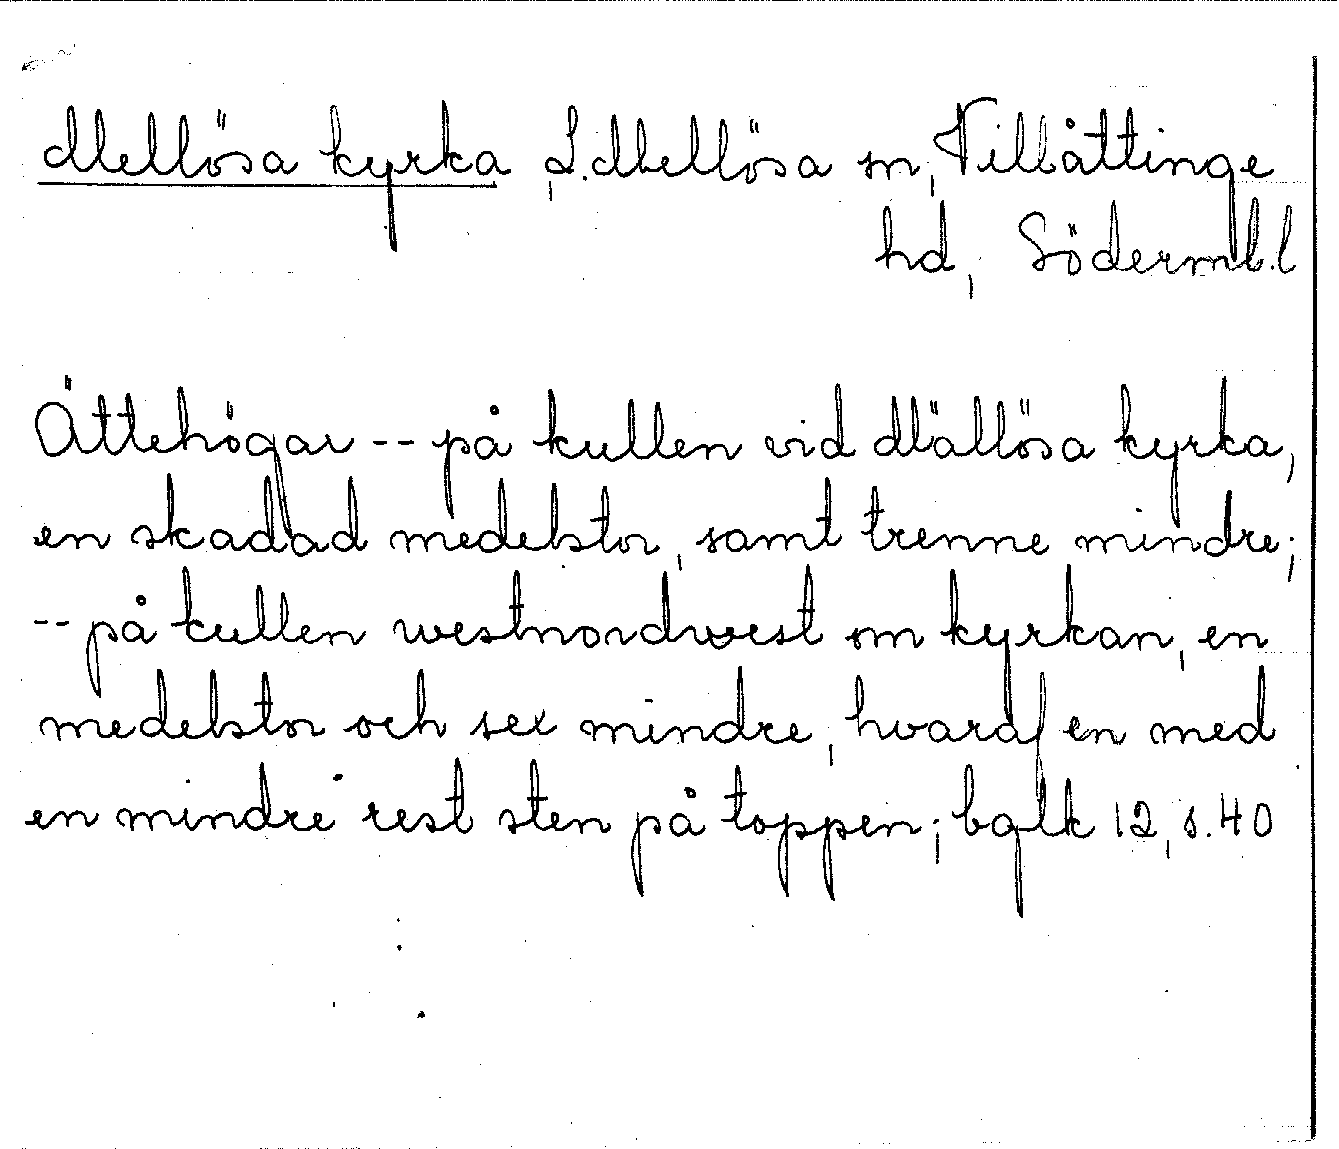 Mellösa kyrka, L. Mellösa sn, Villåttinge
hd, Söderml. l
Ättehögar -- på kullen vid Mällösa kyrka,
en skadad medelstor, samt trenne mindre;
-- på kullen westnordwest om kyrkan, en
medelstor och sex mindre, hvaraf en med
en mindre rest sten på toppen; bqlk 12, s. 40